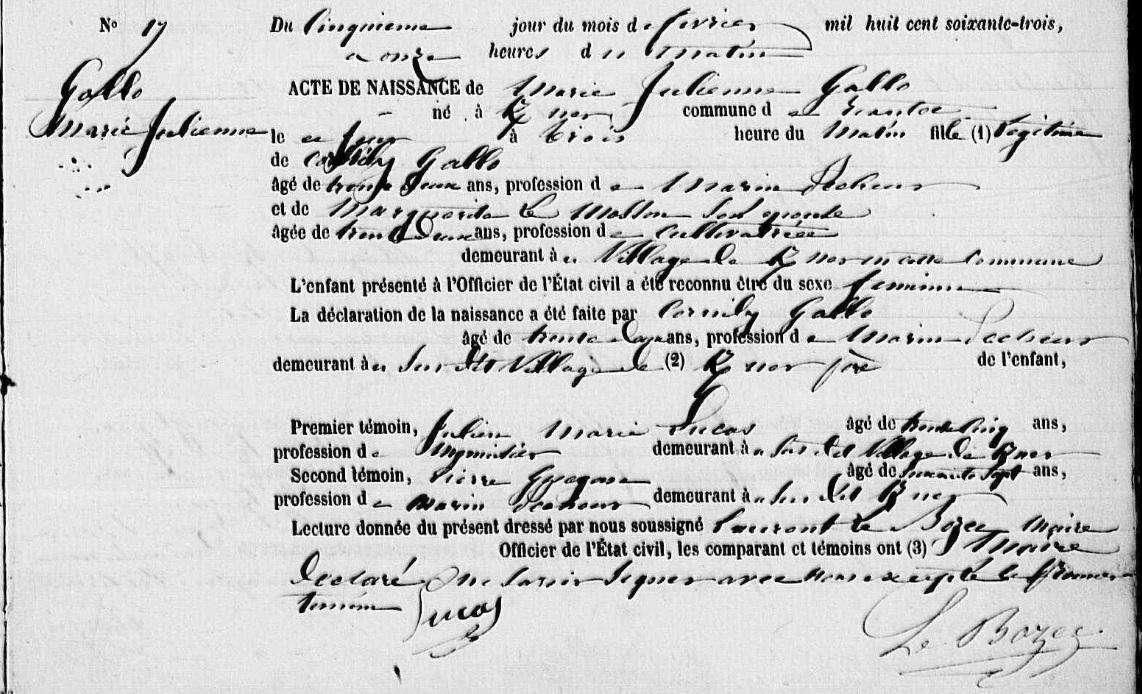 Nº 17 Du Cinquieme jour du mois de fevrier mil huit cent soixante-trois,
a onze heures du Matin
Gallo
Marie Julienne
ACTE DE NAISSANCE de Marie Julienne Gallo
né à K/ nor commune de
le ce jour à trois heure du Matin fille (1) Legitime
de Cornily Gallo
âgé de trente deux ans, profession de Marin Pecheur
et de Marguerite Le Mollon Son epouse
âgée de trente Deux ans, profession de Cultivatrice
demeurant à u Village de K/ nor commune
L'enfant présenté à l'Officier de l'État civil a été reconnu être du sexe feminin
La déclaration de la naissance a été faite par Cornily Gallo
âgé de trente ans, profession de Marin Pecheur
demeurant à u Sus dit Village de (2) K/ nor père de l'enfant,
Premier témoin, Julien Marie Lucas âgé de trente Cinq ans,
profession de demeurant à u Sus dit Village de K/nor
Second témoin, Pierre Guegan âgé de ans,
profession de Marin Pecheur demeurant à u Sus dit K/nor
Lecture donnée du présent dressé par nous soussigné Laurent Le Bozec Maire
Officier de l'État civil, les comparant et témoins ont (3) Maire
Declaré Ne Savoir Signer avec nous excepté le premier
temoin Lucas
Le Bozec